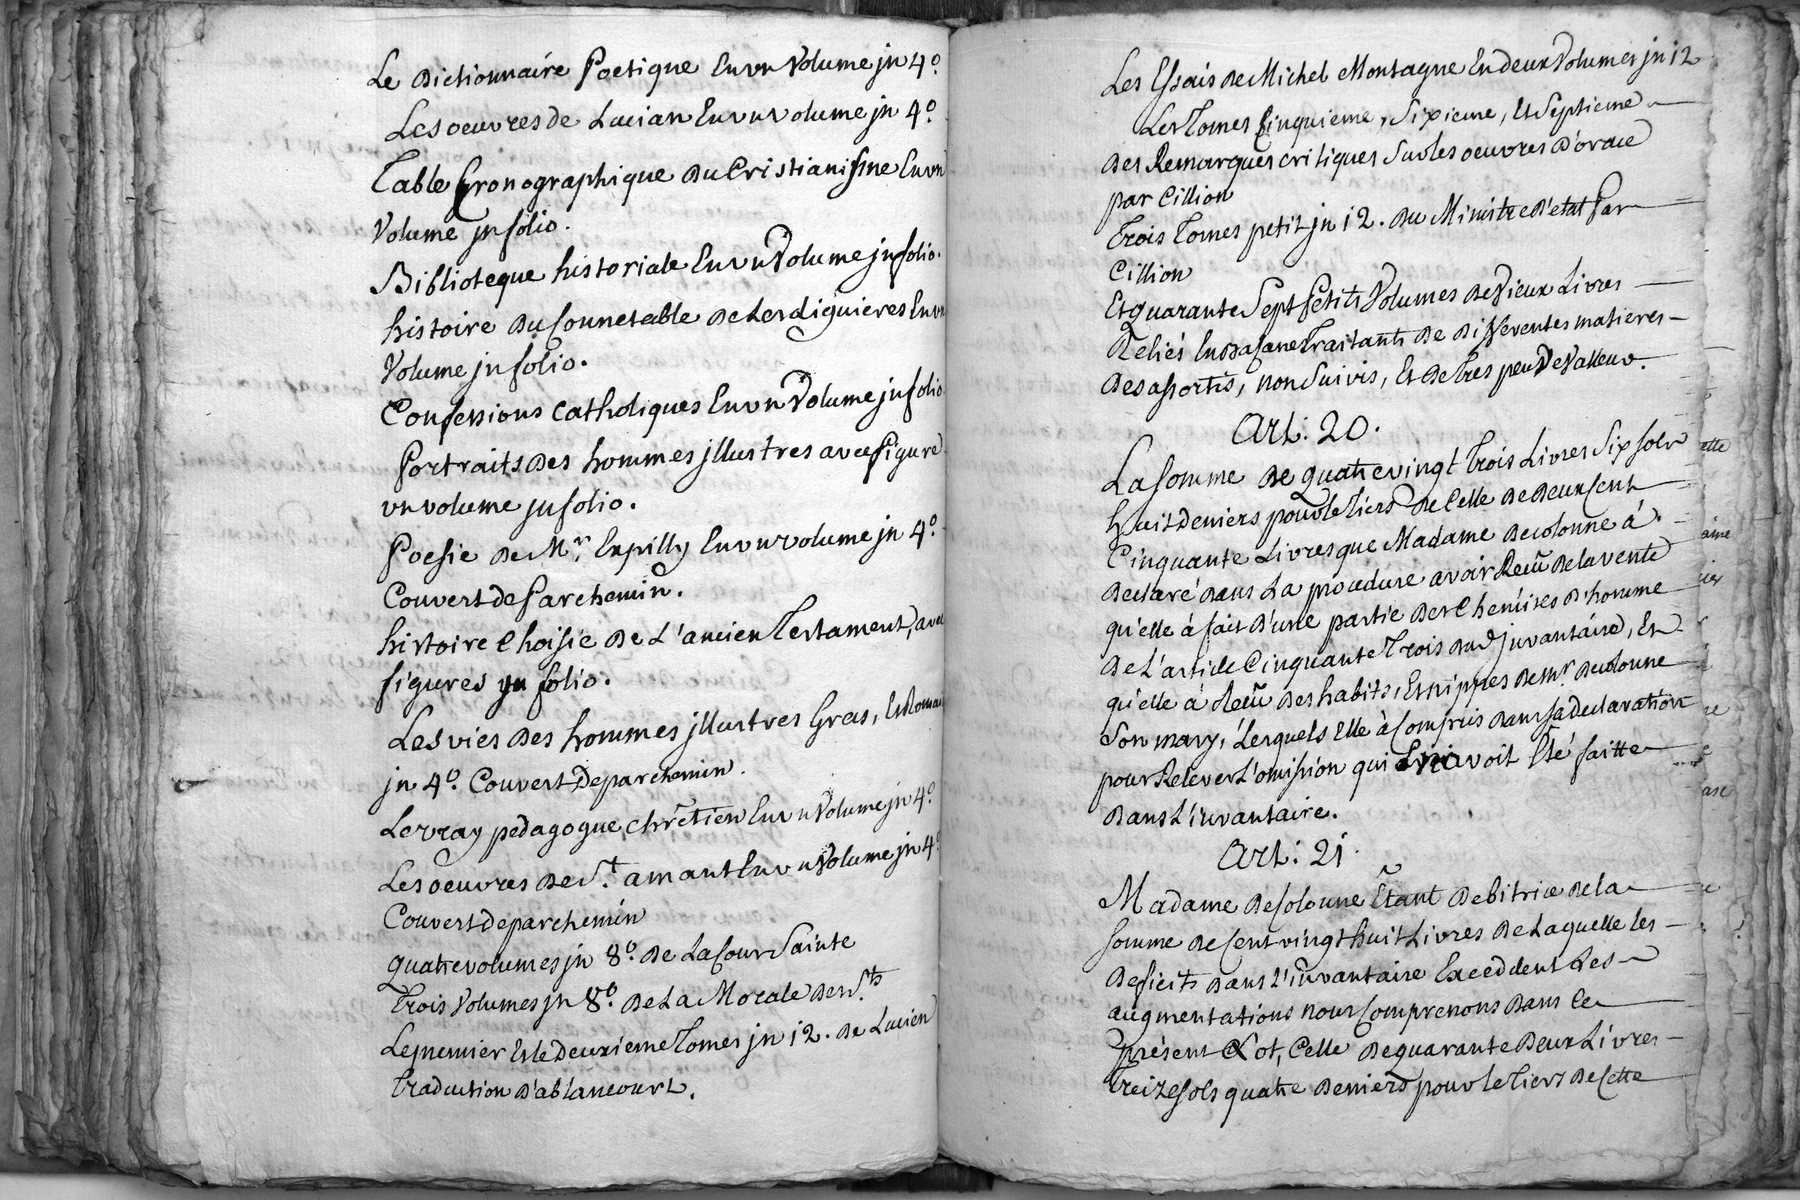 Le Dictionnaire Poetique En vn Volume jn 4.º
Les oeuvres de Lucian En vn volume jn 4.º
Table Cronographique Du Cristianisme En vn
Volume jn folio.
Biblioteque historiale En vn Volume jn folio.
histoire Du Connetable De Lesdiguieres En vn
Volume jn folio.
Confessions Catholiques En vn Volume jn folio
Portraits Des hommes jllustres avec figure
vn volume jn folio.
Poesie De Mr. Expilly En vn volume jn 4.º
Couvert De Parchemin.
histoire Choisie De L'ancien Testament, avec
figures jn folio.
Les vies Des hommes jllustres Grecs, Et Romai
jn 4.º Couvert De parchemin.
Le vray pedagogue chrẽtien En vn Volume jn 4.º
Les oeuvres De St. amant En vn Volume jn 4.º
Couvert De parchemin
quatre volumes jn 8.º De La Cour Sainte
Trois Volumes jn 8.º De La Morale De
Le premier Et le Deuxieme Tomes jn 12. De Lucien
Traduction D'ablancourt.
Les Essais De Michel Montagne En deux Volumes jn 12
Les Tomes Cinquieme, Sixieme, Et Septieme
Des Remarques critiques Sur les oeuvres D'orace
par Cillion
Trois Tomes petit jn 12. Du Ministre D'etat Par
Cillion
Et quarante Sept Petits Volumes De Vieux Livres
Reliés En Basane Traitants De Differentes matieres
Desassortis, non Suivis, Et De Tres peu De Valleur.
Art: 20.
La Somme De quatre vingt Trois Livres Six Sols
huit Deniers pour le Tiers De Celle De Deux Cent
Cinquante Livres que Madame De Colonne á
Declaré Dans La procedure avoir Receu De la vente
qu'elle á fait D'une partie Des Chemises D'homme
De L'article Cinquante Trois Dud. jnvantaire, Et
qu'elle á Receu Des habits, Et nippes De Mr. De Colonne
Son mary, Lesquels Elle á Compris Dans Sa Declaration
pour Relever L'omission qui En avoit Eté faitte
Dans L'invantaire.
Art: 21.
Madame De Colonne Etant Debitrice De la
Somme De Cent vingt huit Livres De Laquelle les
Deficits Dans L'invantaire Exceddent Les
augmentations nous Comprenons Dans Ce
présent Lot, Celle De quarante Deux Livres
Treize Sols quatre Deniers pour le Tiers De Cette